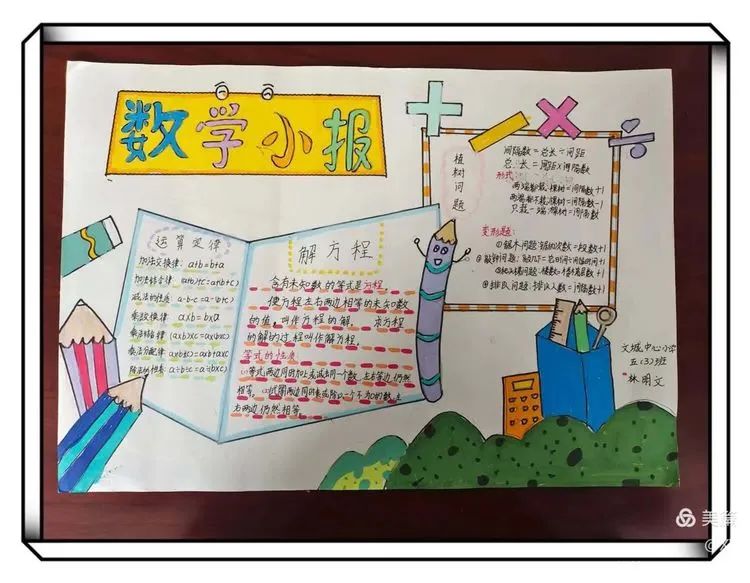 数学小报
运算定律
加法交换律: a+b=b+a
加法结合律: (a+b)+c=a+(b+c)
减法的性质: a-b-c=a-(b+c)
乘法交换律: a×b=b×a
乘法结合律: (a×b)×c=a×(b×c)
乘法分配律: a×(b+c)=a×b+a×c
除法的性质: a÷b÷c=a÷(b×c)
解方程
含有未知数的等式是方程。
使方程左右两边相等的未知数
的值,叫作方程的解。 求方程
的解的过程叫作解方程。
等式的性质
(1)等式两边同时加上或减去同一个数,左右两边仍然
相等。
左
右两边仍然相等
植树问题
间隔数=总长÷间距
总长=间距×间隔数
形式:
两端都栽,棵树=间隔数+1
两端都不栽,棵树=间隔数-1
只栽一端,棵树=间隔数
变形题:
①锯木问题
④排队问题:排队人数=间隔数+1
文城中心小学
五(3)班
林明文
美